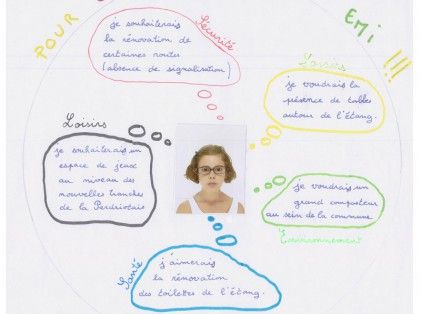 POUR
EMI !!!
Sécurité
je souhaiterais
la rénovation de
certaines routes
(absence de signalisation)
Loisirs
je voudrais la
présence de tables
autour de l'étang.
Loisirs
je souhaiterais un
espace de jeux
au niveau des
nouvelles tranches
de la Perdriotais
je voudrais un
grand composteur
au sein de la commune
Environnement
Santé
j'aimerais
la rénovation
des toilettes de l'étang.